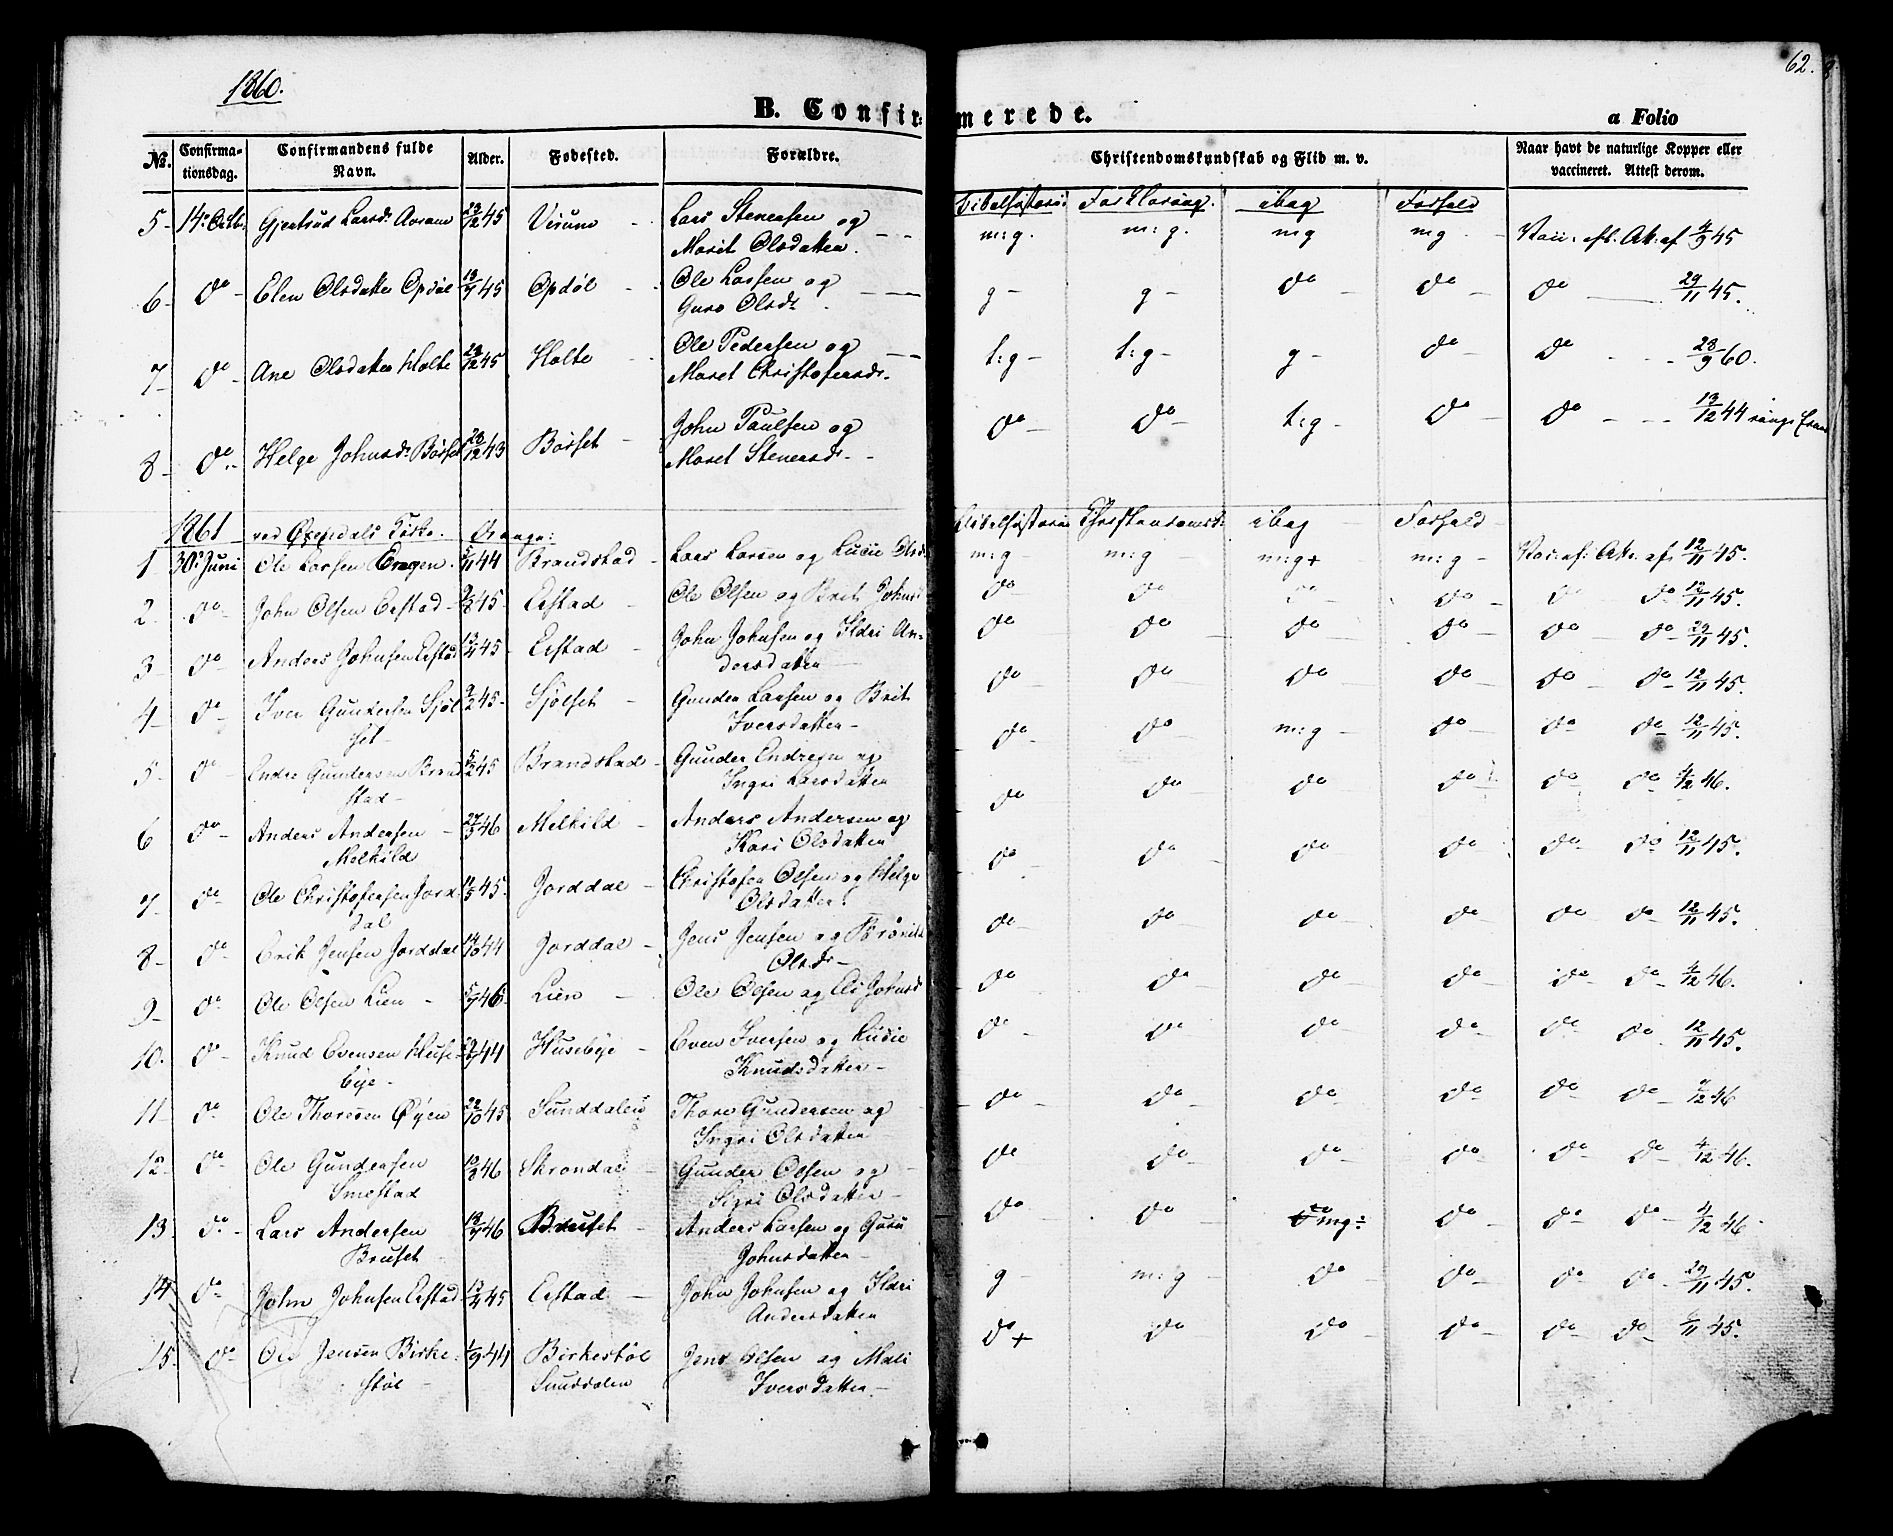 1860.
62.
B. Confirmerede.
a Folio
No. Confirmationsdag. Confirmandens fulde Navn. Alder. Fødested. Forældre. Christendomskundskab og Flid m. v. Naar havt de naturlige Kopper eller vaccineret. Attest derom.
Bibelhistorie Forklaring. ibog Forhold
5 - 14. Octb. Gjertrud Larsd. 23/12 45 Virum - Lars Stenersen og Marit Olsdatter. m:g. m:g. mg mg - Vacc. Att. af 4/9 45
6 - do - Elen Olsdatter Opdøl 13/9 45 Opdøl - Ole Larsen og Guro Olsdr. g - g - do - do - do 29/11 45.
7 - do - Ane Olsdatter Holte 29/12 45 Holte - Ole Pedersen og Maret Christofersdr. t:g - t:g - g - do - do - 28/9 60.
8 - do - Helge Johnsdr. Børset 28/12 43 Børset - John Paulsen og Maret Stenersdr. do - do - t:g - do - do - 13/12 44
1861 ved Øxendals Kirke. Drenge:
Bibelhistorie Christendomsk. ibog - Forhold -
1 30' Juni Ole Larsen Engen. 5/11 44 Brandstad - Lars Larsen og Lucie Olsd. m:g - m:g m:g+ m:g - Vac. af: Att. af 12/11 45.
2. do - John Olsen Erstad - 9/8 45 Erstad - Ole Olsen og Brit Johnsd do do do - do - do do 12/11 45.
3 do - Anders Johnsen Erstad 12/4 45 Erstad - John Johnsen og Ildri Andersdatter - do - do - do - do - do - do 29/11 45.
4 - do - Iver Gundersen Sjølset - 9/2 45 - Sjølset - Gunder Larsen og Brit Iversdatter - do - do - do - do - do - do 12/11 45.
5 - do - Endre Gundersen Brandstad - 5/2 45 Brandstad - Gunder Endresen og Ingri Larsdatter do - do - m:g - do - do - do 12/11 45.
6 do - Anders Andersen - Melkild 27/3 46 Melkild - Anders Andersen og Kari Olsdatter do do - do - do - do - do - 4/12 46.
7 - do - Ole Christofersen Jorddal 11/5 45. Jorddal - Christofer Olsen og Helge Olsdatter do - do - do - do - do - do - 12/11 45.
8 - do - Erik Jensen Jorddal 14/10 44 Jorddal - Jens Jensen og Olsdr - do - do do - do - do - do - 12/11 45.
9 - do Ole Olsen Lien - 5/9 46 Lien - Ole Olsen og Eli Johnsd do - do do - do - do - do - 4/12 46.
10. do - Knud Evensen Husebye - 44 Husebye - Even Iversen og Lucie Knudsdatter - do - do do - do - do - do - 12/11 45.
11 - do - Ole Thoresen Øyen 22/10 45. Sunddalen Thore Gundersen og Ingri Olsdatter - do - do - do - do - do - do - 12 46
12 - do - Ole Gundersen Smestad 10/8 46 Skrondal - Gunder Olsen og - Sigri Olsdatter - do do - do - do - do - do - 4/12 46.
13 do - Lars Andersen Bruset - 19/9 46 Bruset - Anders Larsen og Guru Johnsdatter - do - do - mg÷ do - do - do - 4/12 46 -
14 do - John Johnsen Erstad 12/4 45 Erstad - John Johnsen og Ildri Andersdatter g - m:g - do - do - do - do - 29/11 45.
15. do - Ole Jensen Birkestøl - 9 44 Birkestøl Sunddalen Jens Olsen og Mali Iversdatter - do + do do - do - do - do - 11 45.